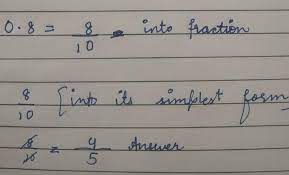 0.8 = 8/10 - into fraction
8/10 [into its simplest form
8/10 = 4/5 Answer